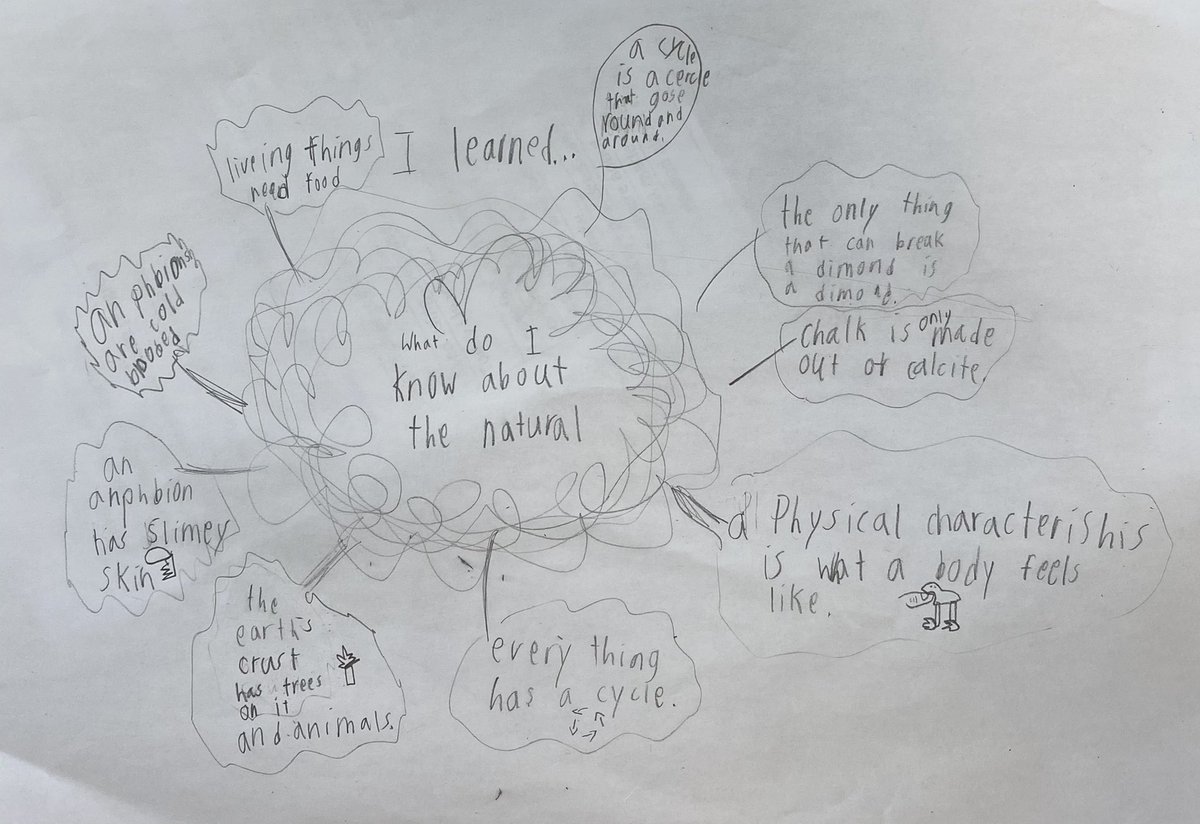 a cycle
is a cercle
that gose
round and
around.
liveing things
need food
I learned...
the only thing
that can break
a dimond is
a dimond.
are cold
blooded
What do I
know about
the natural
chalk is only made
out of calcite.
an
anphbion
has slimey
skin
a Physical characterishis
is what a body feels
like.
the
earth's
crust
has trees
on it
and animals.
every thing
has a cycle.